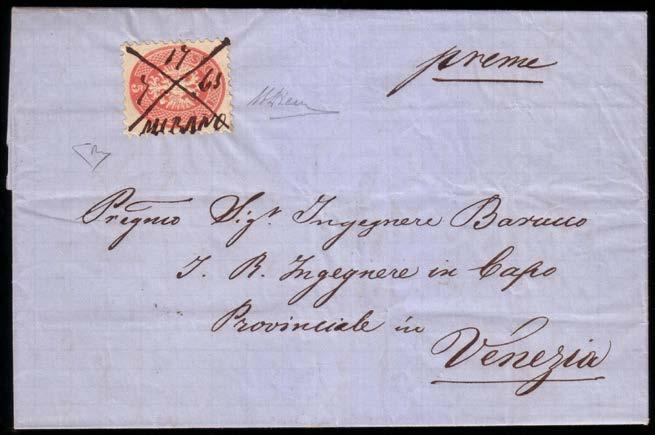 preme
17
7 65
MIRANO
5
Pregmo Sigr. Ingegnere Barucco
I. R. Ingegnere in Capo
Provinciale in
Venezia